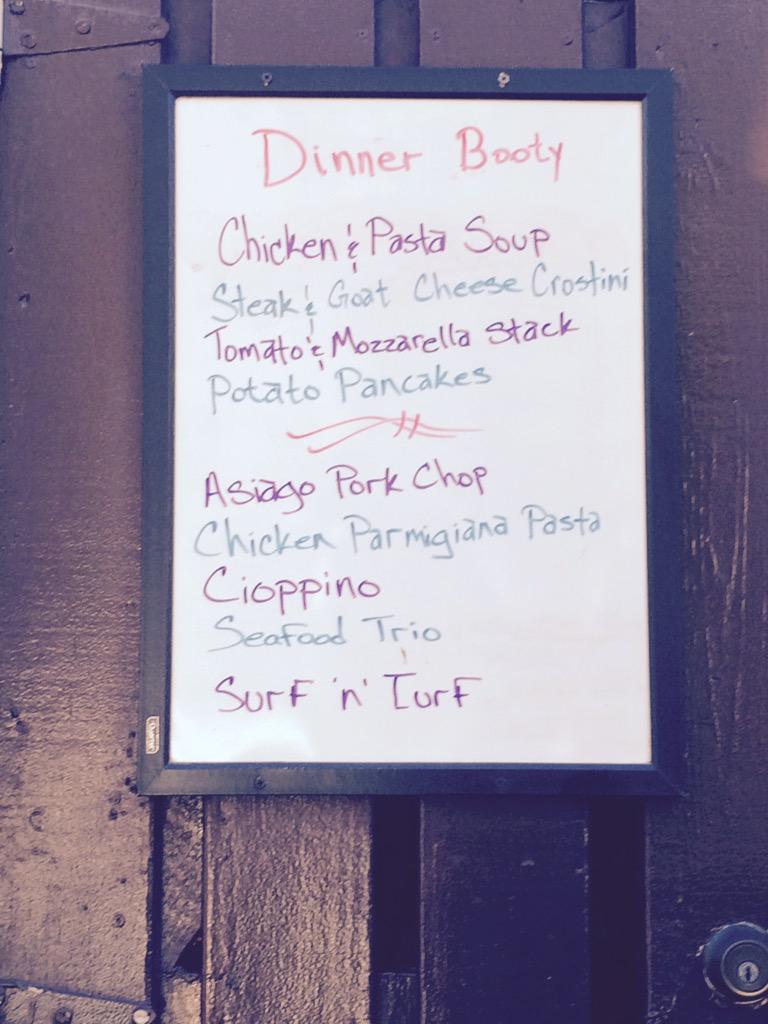 Dinner Booty
Chicken & Pasta Soup
Steak & Goat Cheese Crostini
Tomato & Mozzarella Stack
Potato Pancakes
Asiago Pork Chop
Chicken Parmigiana Pasta
Cioppino
Seafood Trio
Surf 'n' Turf